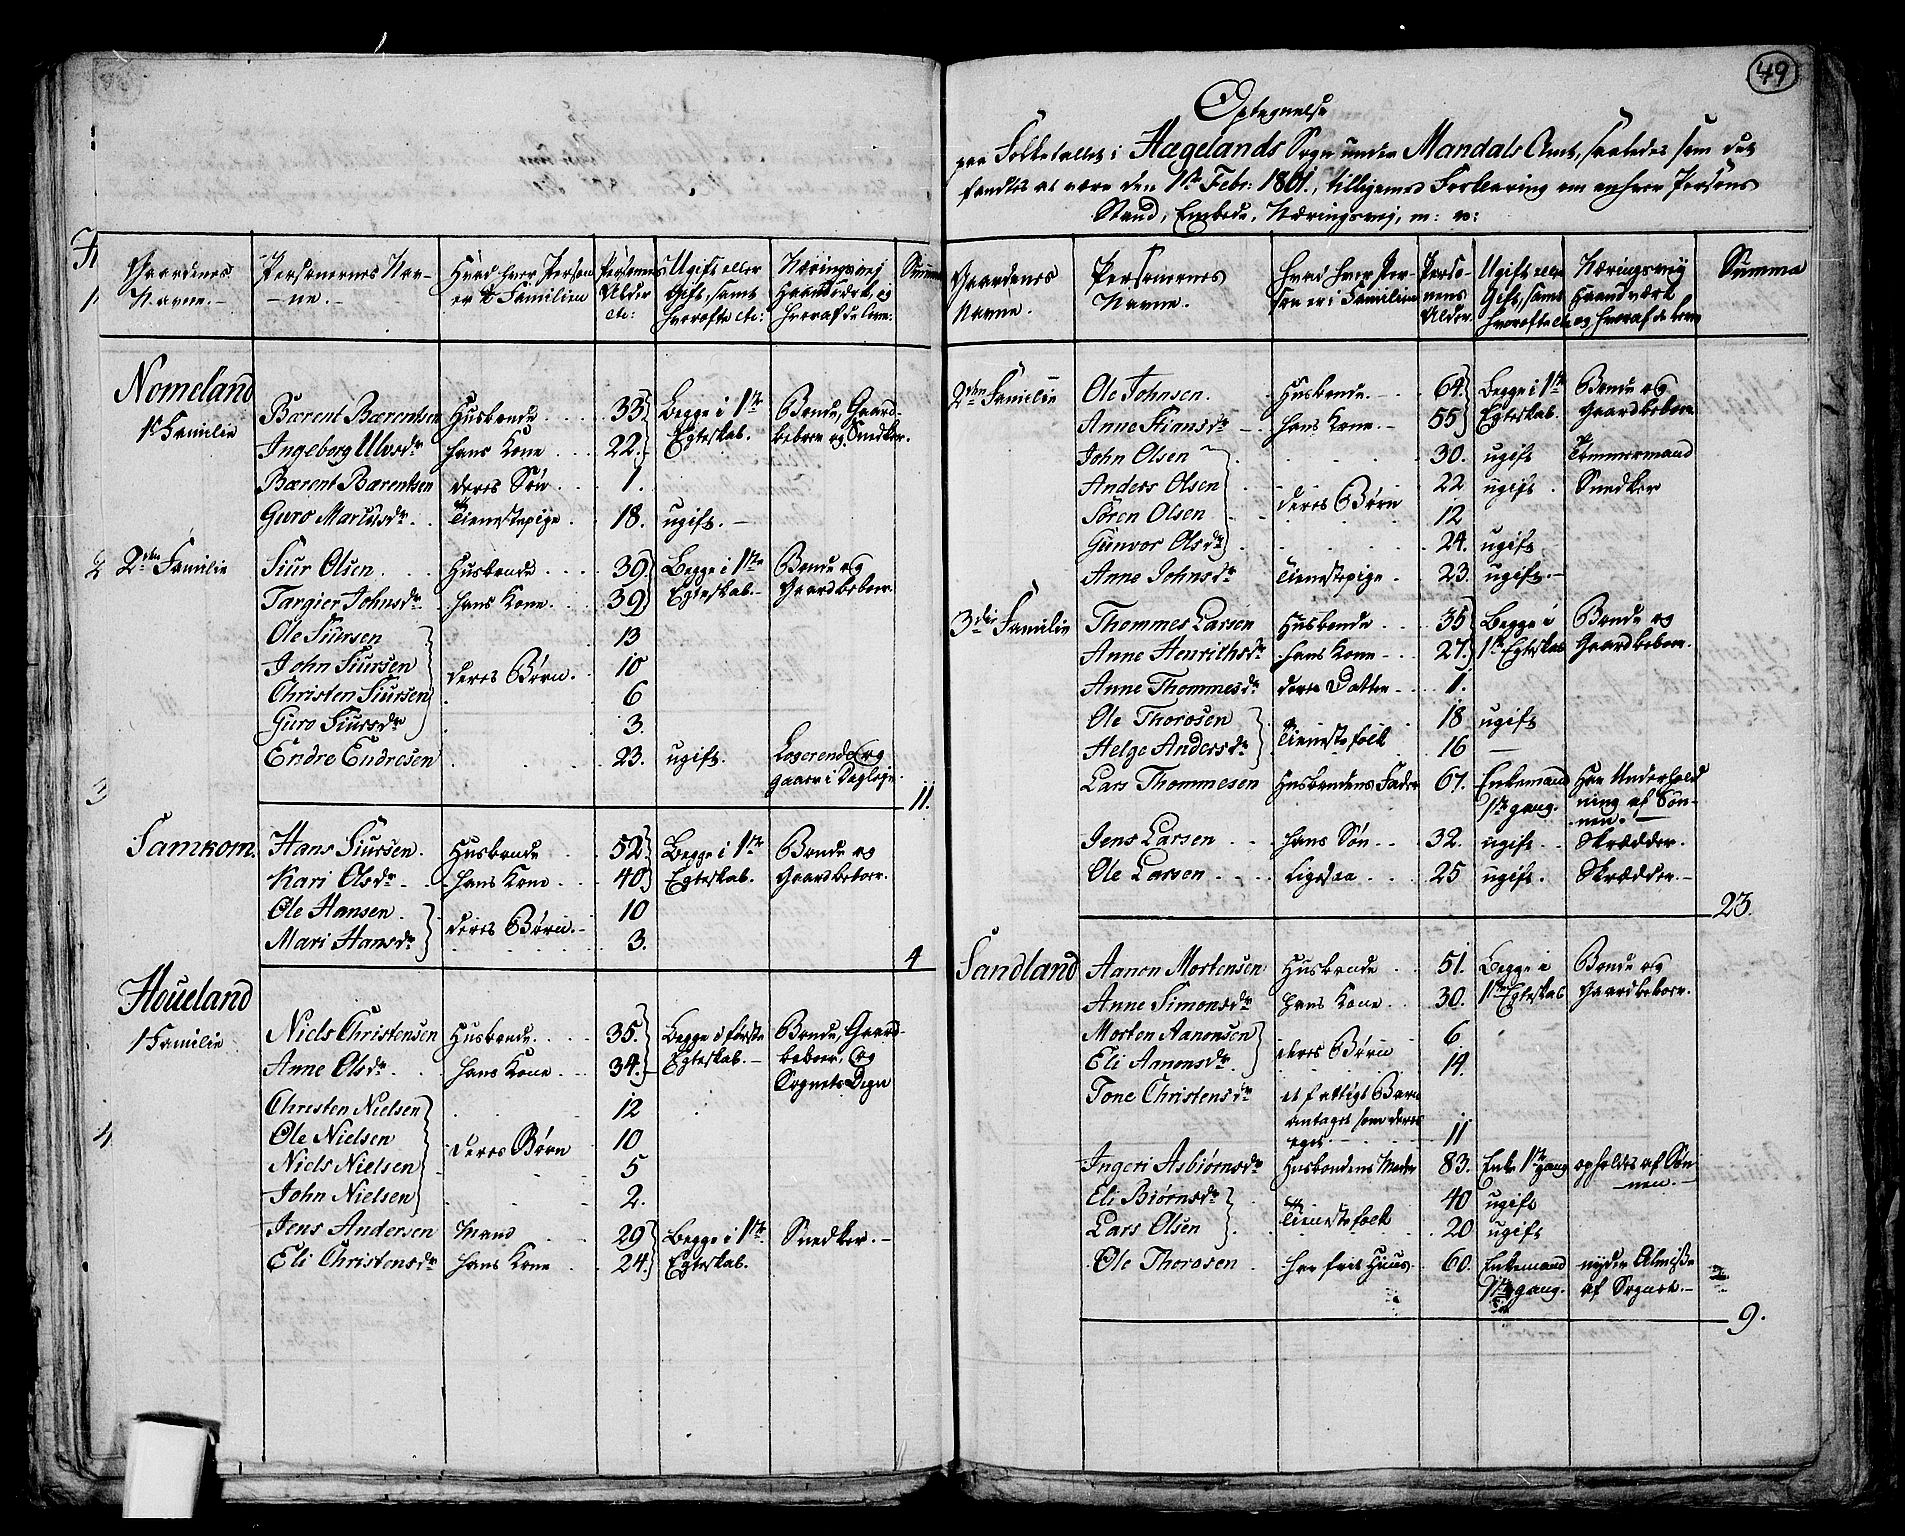 Gaardenes Navne. | Personernes Navne. | Hvad hver Person er i Familien | Personernes Alder etc: | Ugift eller Gift, samt hvorofte etc: | Næringsvej Haandværk, og hvoraf de leve: | Summa
Nomeland
1ste Familie
Bærent Bærentsen | Husbonde | 33 | Begge i 1ste Egteskab. | Bonde, Gaardbeboer og Snedker.
Ingeborg Ulvsdr | hans Kone | 22.
Bærent Bærentsen | deres Søn | 1.
Guro Marcusdr | Tienestepige | 18. | ugift.
2 2den Familie
Siur Olsen | Husbonde | 39 | Begge i 1ste Egteskab. | Bonde og Gaardbeboer.
Targier Johnsdr | hans Kone | 39
Ole Siursen | deres Børn. | 13
John Siursen | 10
Christen Siursen | 6
Guro Siursdr | 3.
Endre Endresen | 23. | ugift. | Loserende og gaaer i Dagleje.
3 | 11.
Samkom.
Hans Siursen. | Husbonde | 52. | Begge i 1ste Egteskab. | Bonde og Gaardbeboer.
Kari Olsdr | hans Kone | 40
Ole Hansen | deres Børn. | 10
Mari Hansdr | 3.
4
Houeland
1 Familie
Niels Christensen | Husbonde. | 35. | Begge i første Egteskab. | Bonde, Gaardbeboer, og Sognets Degn
Anne Olsdr | hans Kone | 34.
Christen Nielsen | deres Børn | 12
4 Ole Nielsen | 10
Niels Nielsen | 5
John Nielsen | 2.
Jens Andersen | Mand | 29 | Begge i 1ste Egteskab. | Snedker.
Eli Christensdr | hans Kone | 24.
49
Optegnelse
paa Folketallet i Hægelands Sogn under Mandals Amt, saaledes som det
fandtes at være den 1ste Febr: 1801., tilligemed Forklaring om enhver Persons
Stand, Embede, Næringsvej, m: v:
Gaardenes Navne. | Personernes Navne. | hvad hver Person er i Familien | Personens Alder | Ugift eller Gift, samt hvorofte etc | Næringsvej Haandværk og hvoraf de leve | Summa
2den Familie
Ole Johnsen. | Husbonde. | 64. | Begge i 1ste Egteskab. | Bonde og Gaardbeboer
Anne Stiansdr | hans Kone. | 55
John Olsen | deres Børn | 30. | ugift | Tømmermand
Anders Olsen | 22 | ugift. | Snedker
Søren Olsen | 12
Gunvor Olsdr | 24. | ugift
Anne Johnsdr | Tienestepige. | 23. | ugift.
3die Familie
Thommes Larsen | Husbonde | 35 | Begge i 1ste Egteskab | Bonde og Gaardbeboer.
Anne Henrichsdr | hans Kone | 27.
Anne Thommesdr | deres Datter | 1.
Ole Thorosen | Tienestefolk | 18 | ugift
Helge Andersdr | 16 | —
Lars Thommesen | Husbondens Fader | 67. | Enkemand 1ste gang. | Har Underholdning af Sønnen.
Jens Larsen | hans Søn | 32. | ugift. | Skrædder.
Ole Larsen | Ligesaa | 25 | ugift. | Skrædder.
23.
Sandland
Aanon Mortensen | Husbonde | 51. | Begge i 1ste Egteskab | Bonde og Gaardbeboer.
Anne Simonsdr | hans Kone | 30.
Morten Aanonsen | deres Børn | 6
Eli Aanonsdr | 14.
Tone Christensdr | et fattigt Barn antaget som deres eget | 11
Ingeri Asbiørnsdr | Husbondens Moder | 83. | Enke 1ste gang | opholdes af Sønnen.
Eli Biørnsdr | Tienestefolk | 40 | ugift
Lars Olsen | 20 | ugift
Ole Thorosen | har frit Huus | 60. | Enkemand 1ste gang. | nyder Almisse af Sognet.
9.